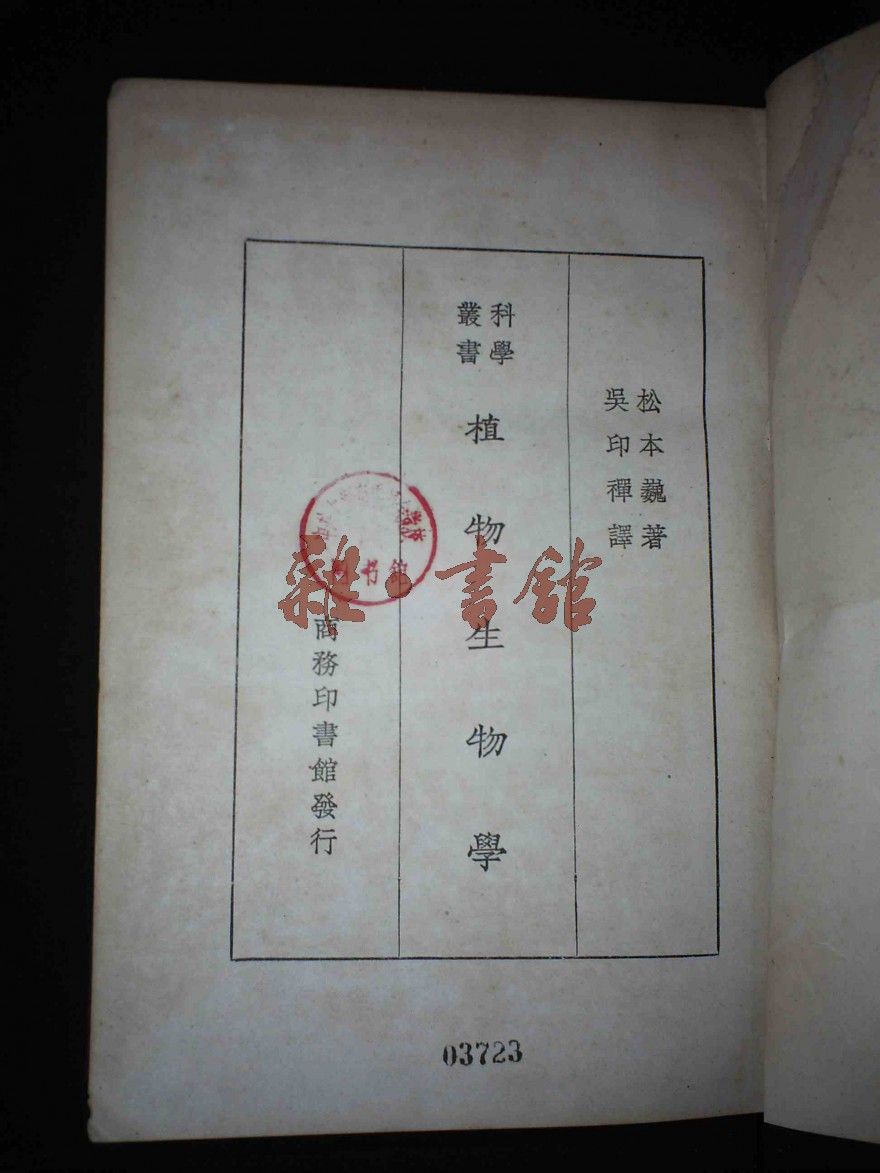 松本巍著
吳印禪譯
科學
叢書
植物生物學
商務印書館發行
雜·書館
03723